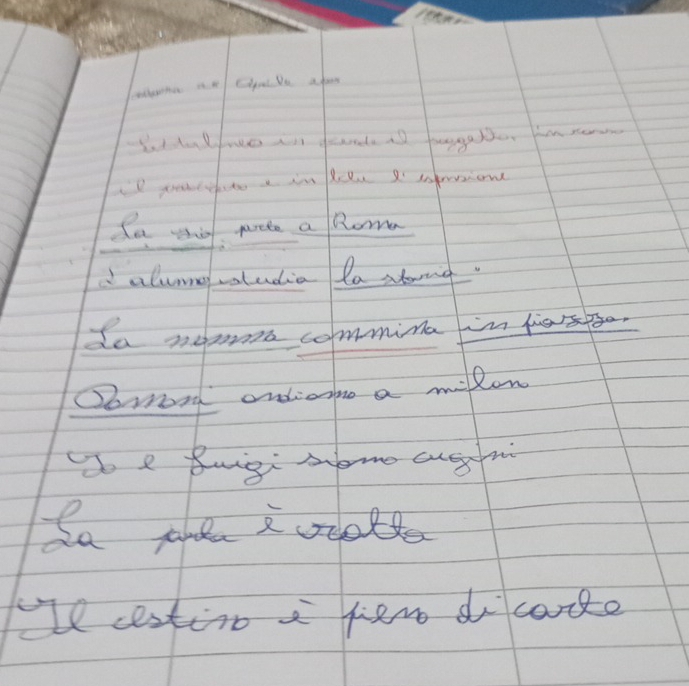 Aprile
in verde il soggetto, in rosso
il predicato e in blu l'espressione
La zia parte a Roma
L'alunno studia la storia
La nonna cammina in piazza.
Domani andiamo a milan
Io e Luigi siamo cugini
La porta è rotta
Il cestino è pieno di carte